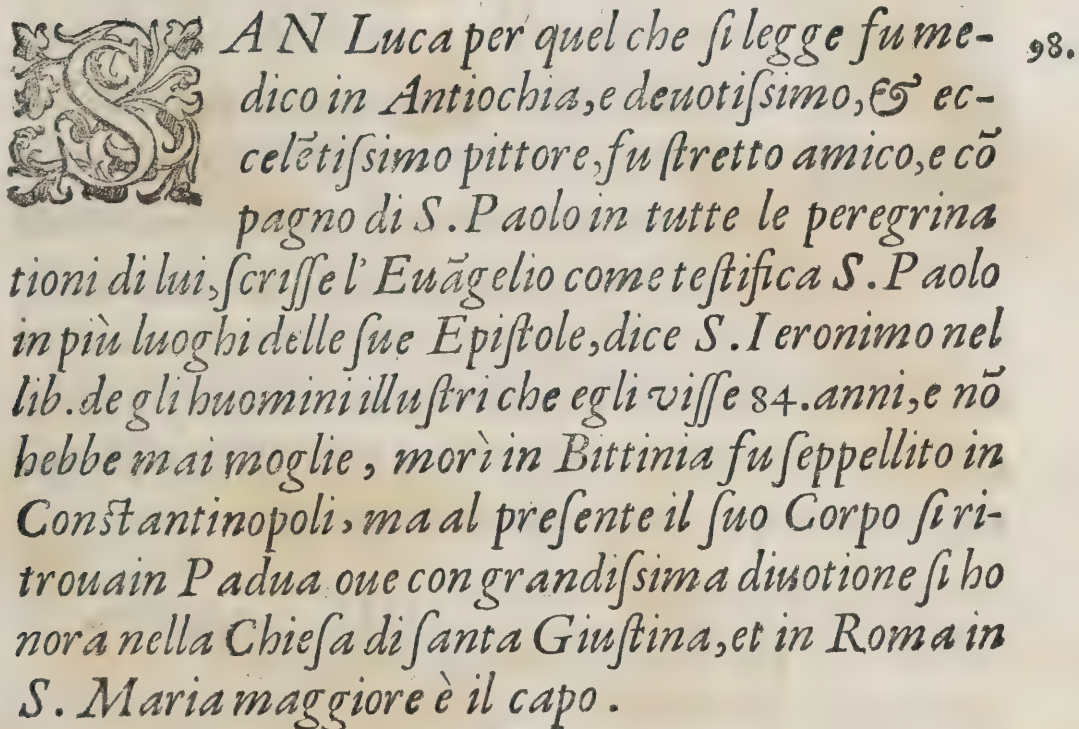 SAN Luca per quel che ſi legge fu me- 98.
dico in Antiochia, e deuotiſsimo, & ec-
celētiſsimo pittore, fu ſtretto amico, e cō
pagno di S. Paolo in tutte le peregrina
tioni di lui, ſcriſſe l' Euãgelio come teſtifica S. Paolo
in più luoghi delle ſue Epiſtole, dice S. Ieronimo nel
lib. de gli huomini illuſtri che egli viſſe 84. anni, e nō
hebbe mai moglie, morì in Bittinia fu ſeppellito in
Conſtantinopoli, ma al preſente il ſuo Corpo ſi ri-
troua in Padua oue con grandiſsima diuotione ſi ho
nora nella Chieſa di ſanta Giuſtina, et in Roma in
S. Maria maggiore è il capo.